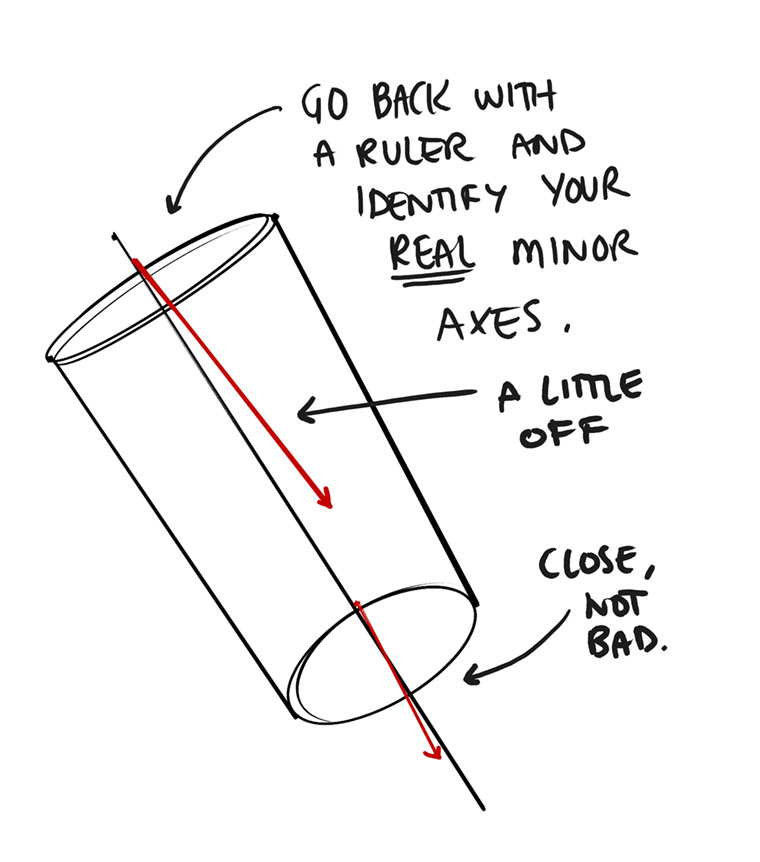 GO BACK WITH
A RULER AND
IDENTIFY YOUR
REAL MINOR
AXES.
A LITTLE
OFF
CLOSE,
NOT
BAD.